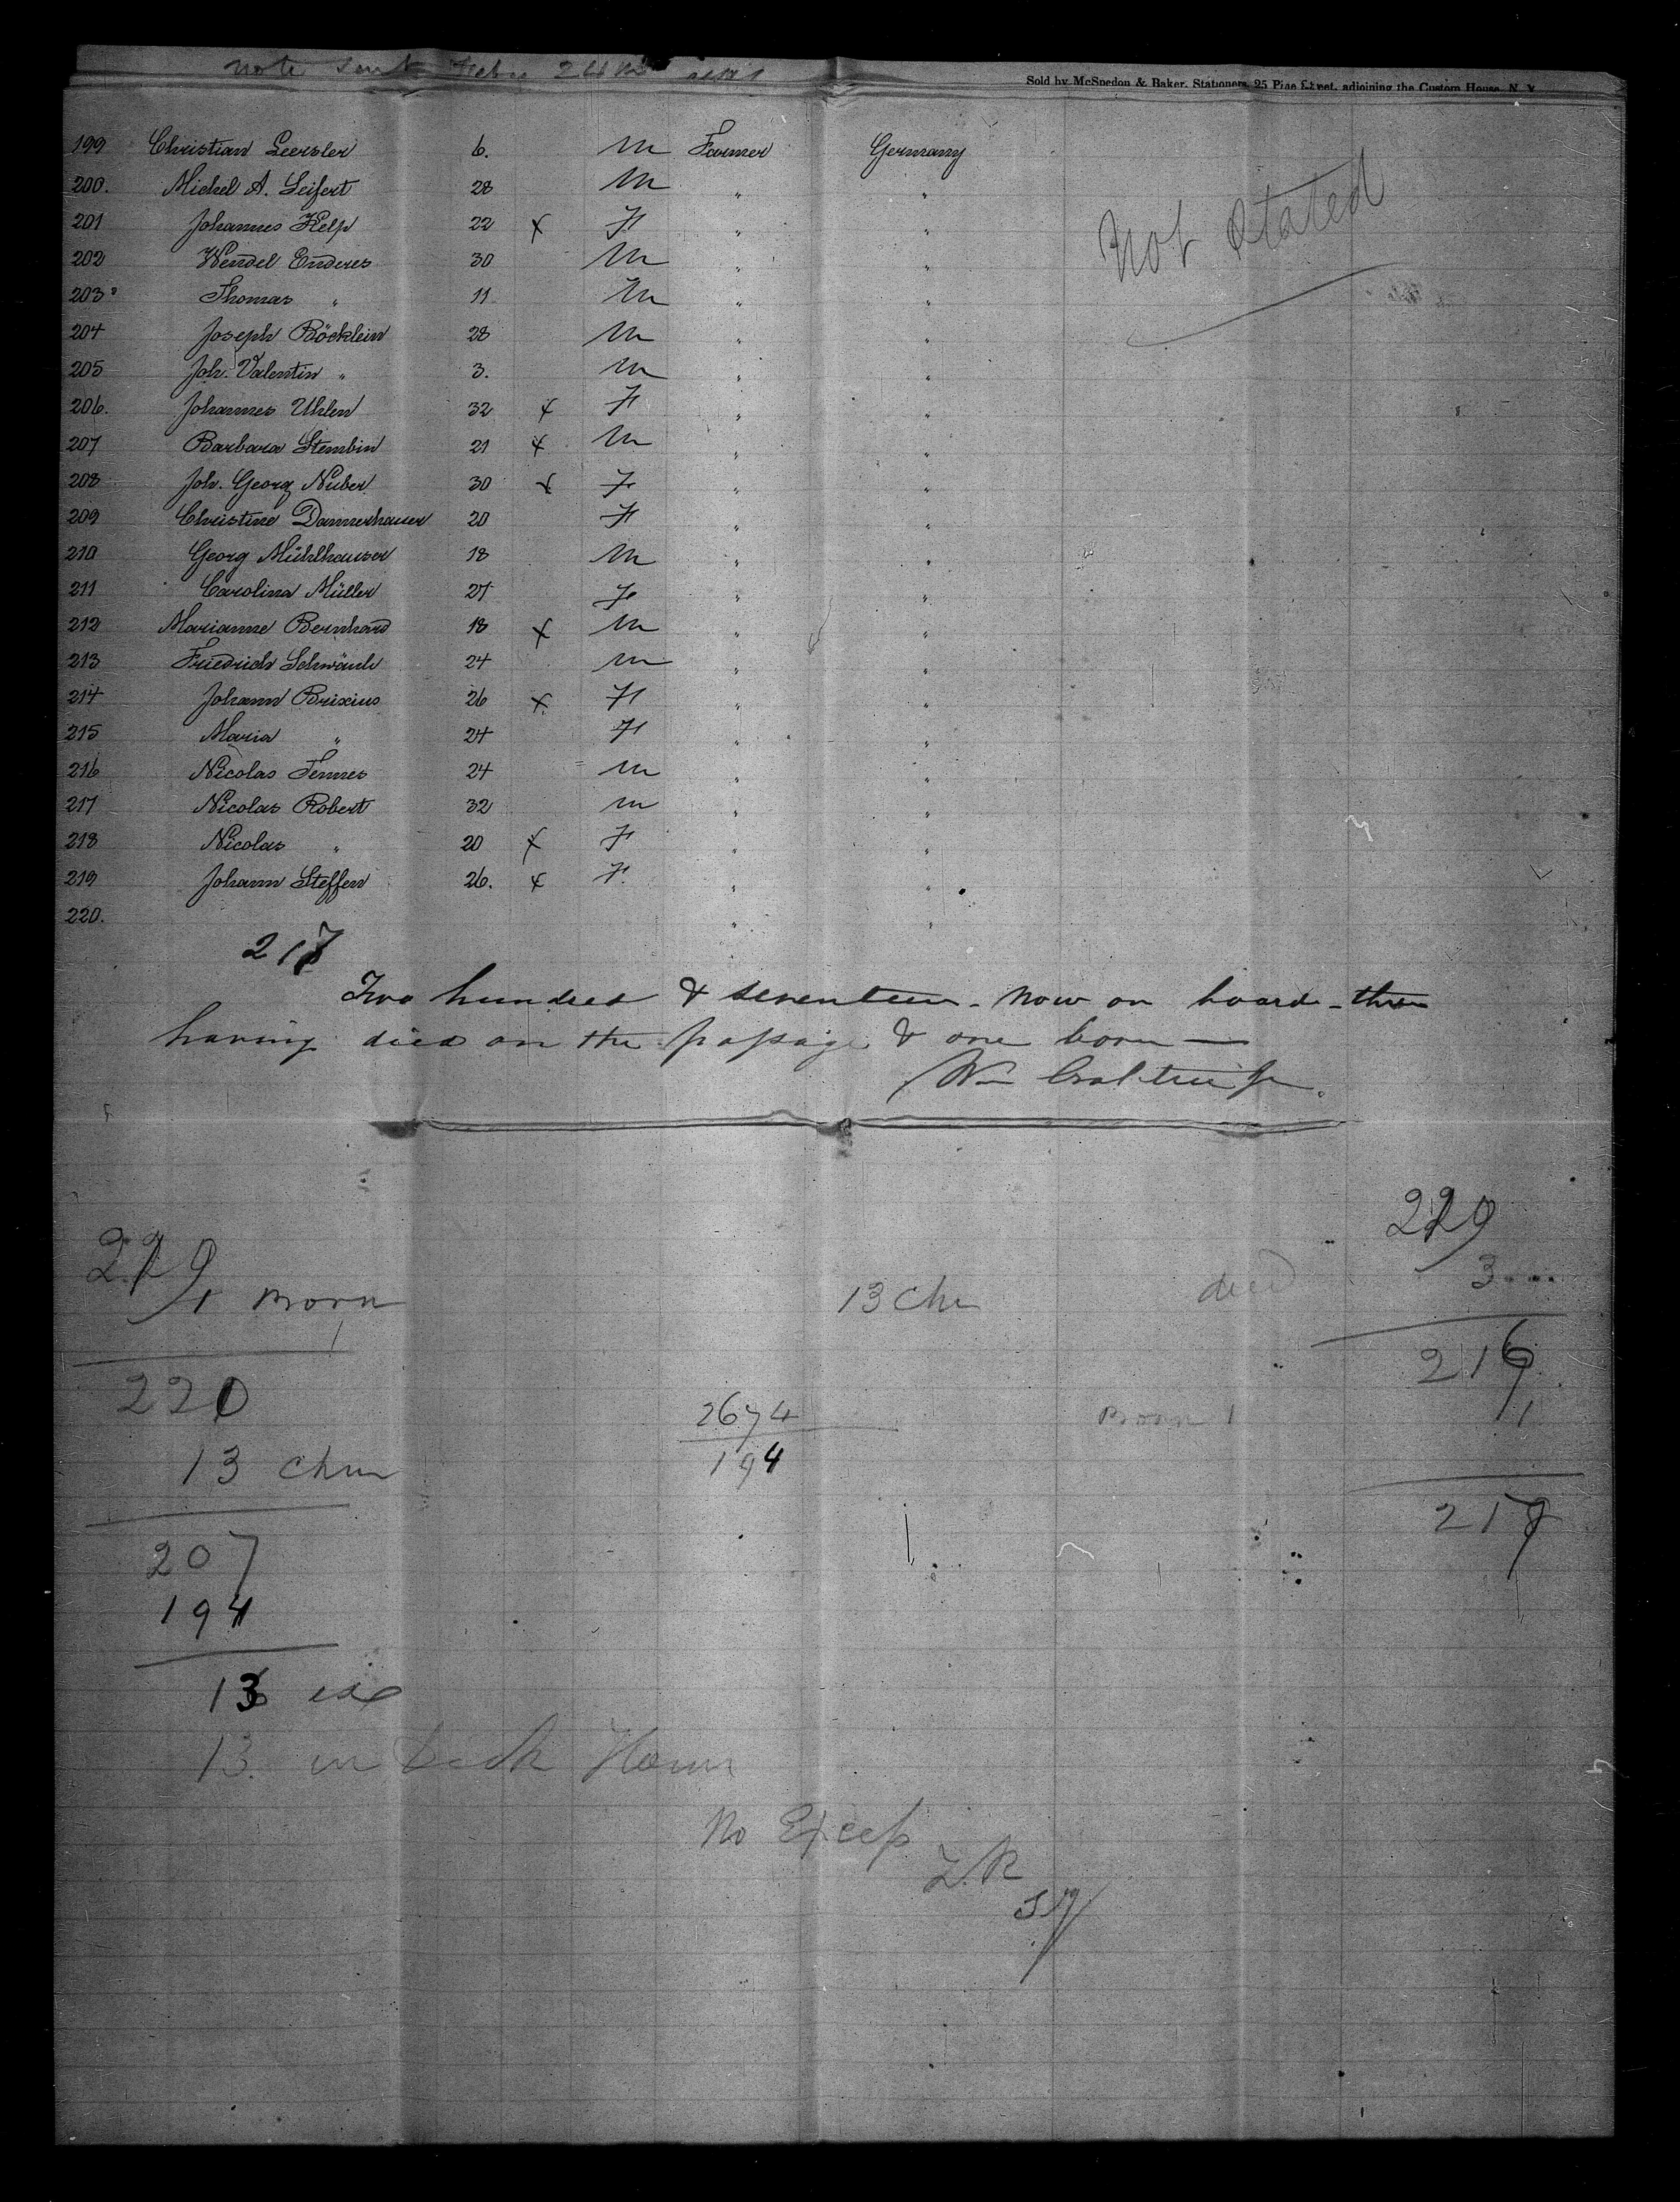 note sent Feby 24th
Sold by McSpedon & Baker, Stationers, 25 Pine Street, adjoining the Custom House, N. Y.
199 Christian Leersler 6. M Farmer Germany
200. Michel A. Seifert 28 M " "
201 Johannes Help 22 x F " "
202 Wendel Enderes 30 M " "
203 Thomas " 11 M " "
204 Joseph Böcklein 28 M " "
205 Joh. Valentin " 3. M " "
206. Johannes Uhlen 32 x F " "
207 Barbara Stembin 21 x M " "
208 Joh. Georg Nuber 30 x F " "
209 Christine Dannerhauer 20 F " "
210 Georg Mühlhauser 18 M " "
211 Carolina Müller 27 F " "
212 Marianne Bernhard 18 x M " "
213 Friedrich Schwänk 24 M " "
214 Johann Brixius 26 x F " "
215 Maria " 24 F " "
216 Nicolas Fennes 24 M " "
217 Nicolas Robert 32 M " "
218 Nicolas " 20 x F " "
219 Johann Steffen 26. x F. " "
220. " "
Not Stated
217
Two hundred & seventeen - now on board - three
having died on the passage & one born —
Wm
219
219
1 Born
13 Chn
died 3
220
216
2674
Born 1
1
13 Chn
194
207
217
194
13 ex
13 in Deck House
No Excep